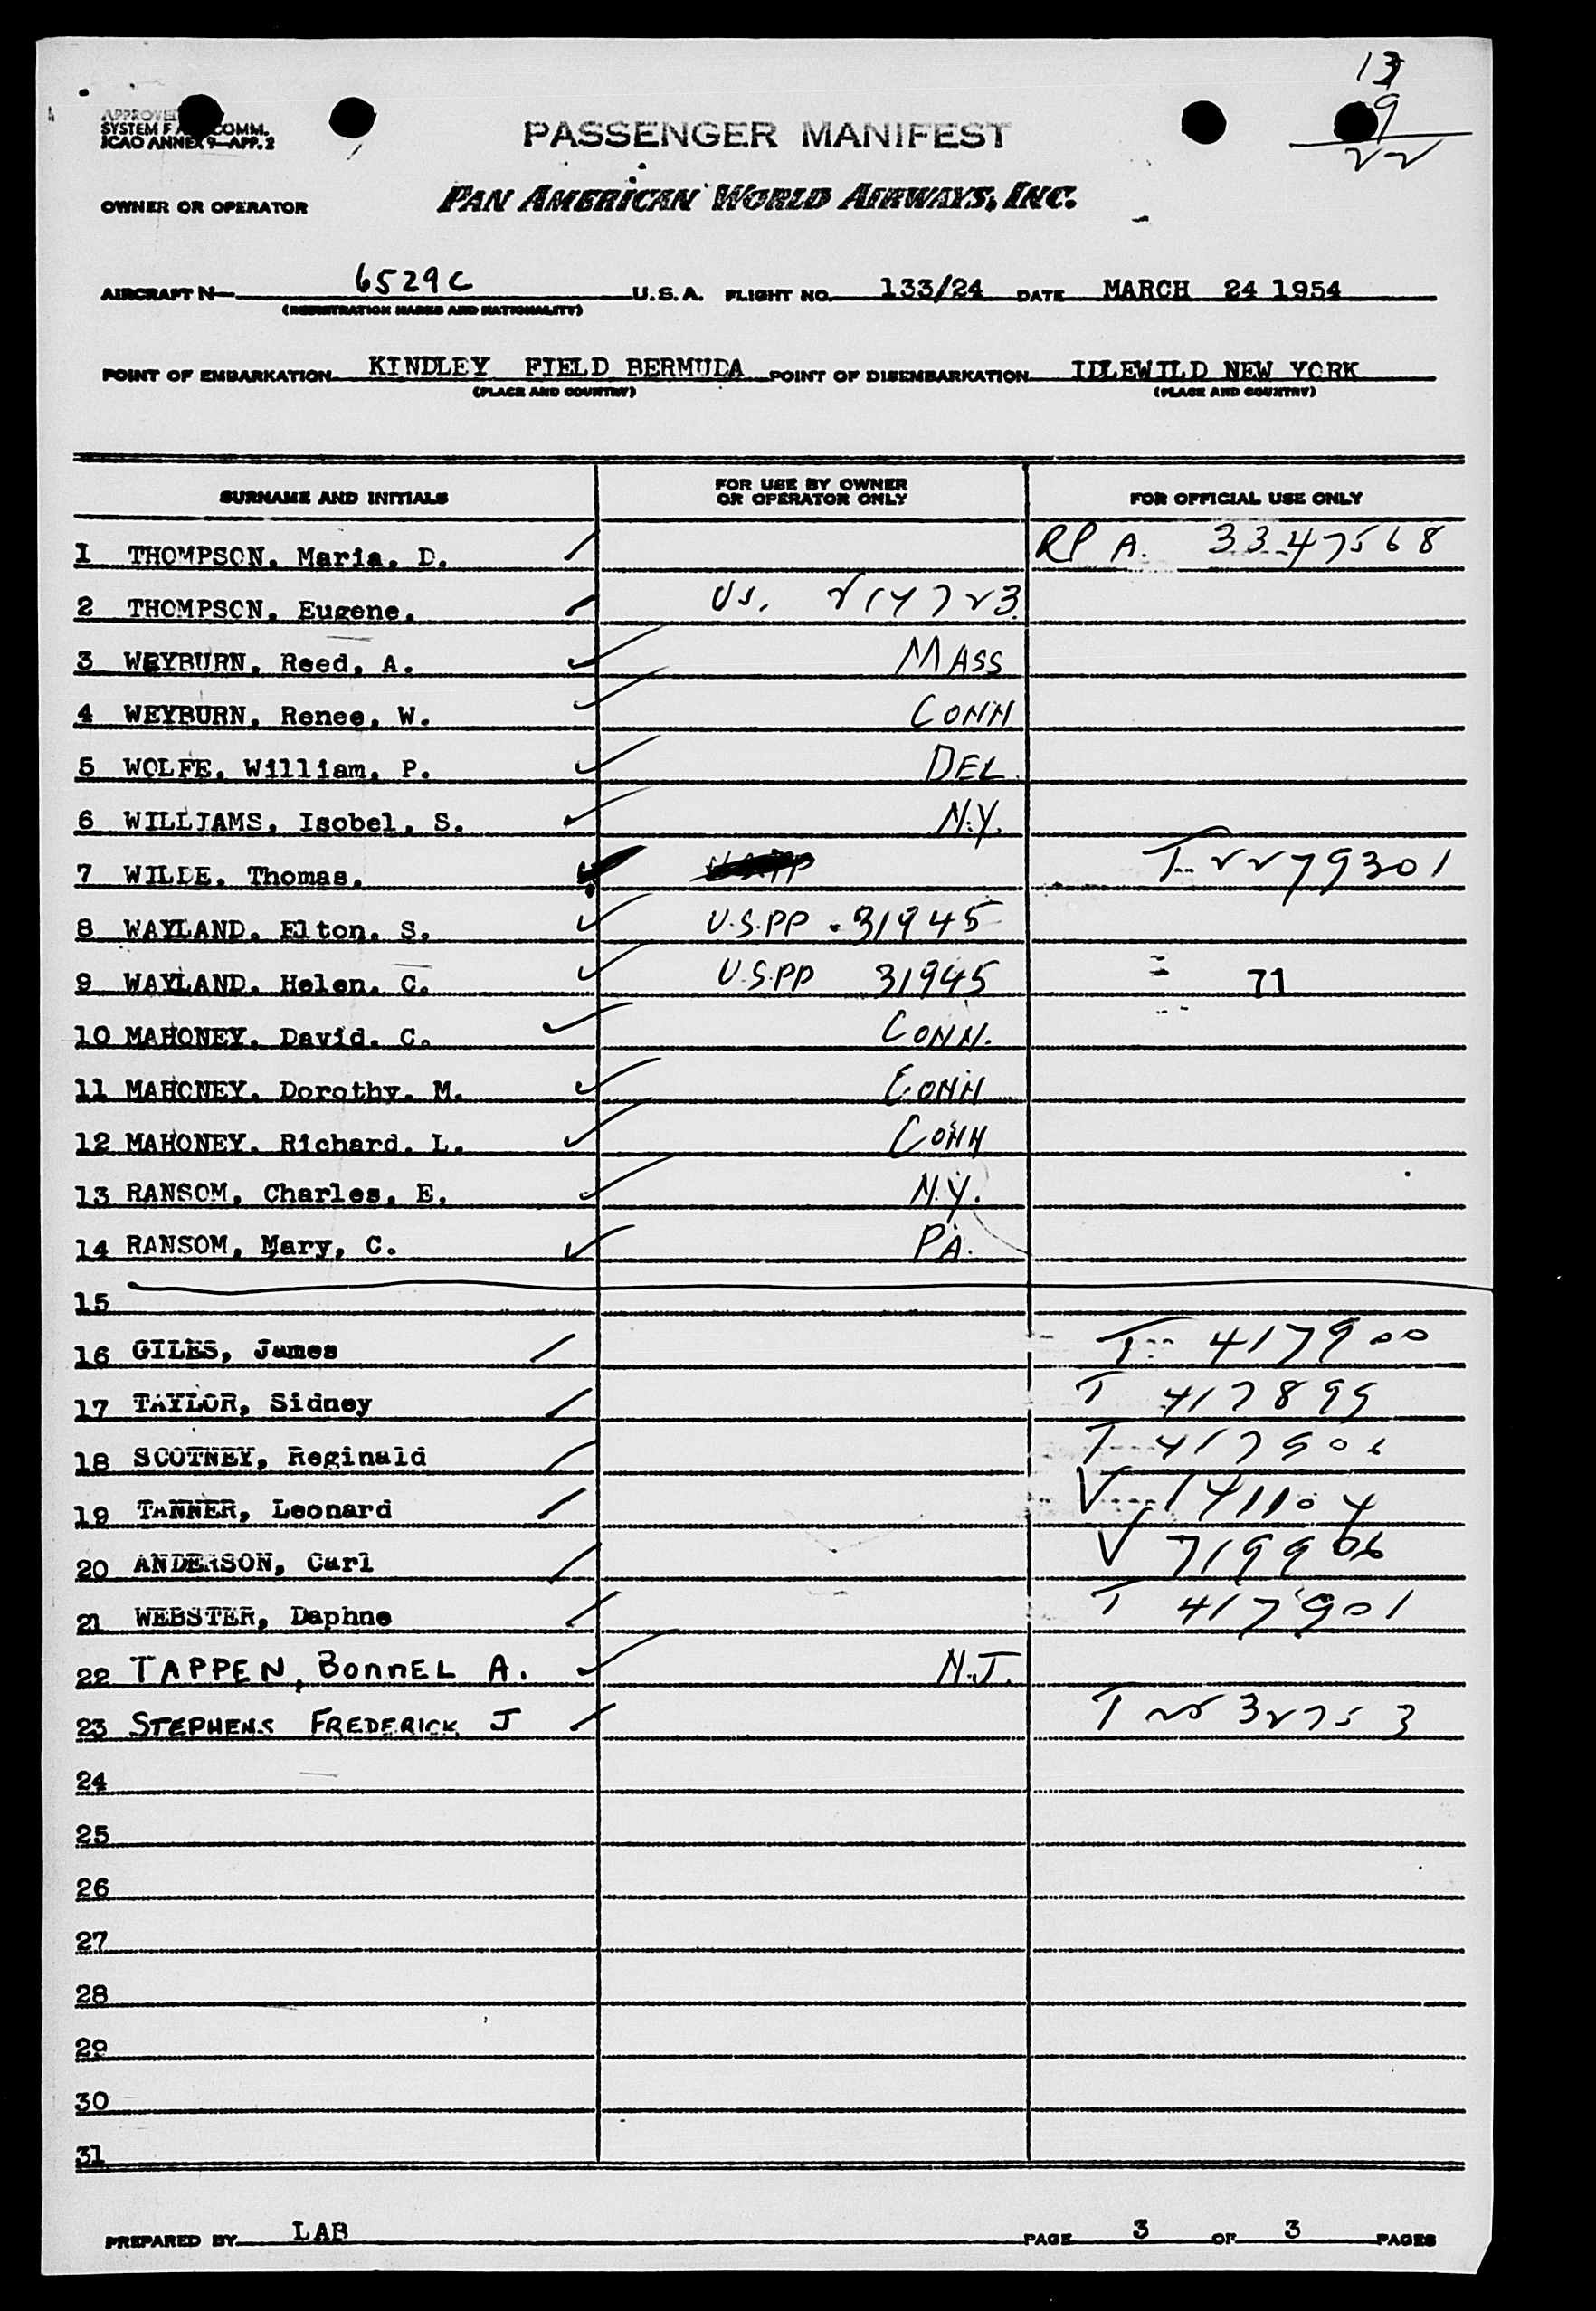 13
9
22
SYSTEM F COMM.
ICAO ANNEX 9-APP. 2
PASSENGER MANIFEST
OWNER OR OPERATOR PAN AMERICAN WORLD AIRWAYS, INC.
AIRCRAFT N 6529C U.S.A. FLIGHT NO. 133/24 DATE MARCH 24 1954
(REGISTRATION MARKS AND NATIONALITY)
POINT OF EMBARKATION KINDLEY FIELD BERMUDA POINT OF DISEMBARKATION IDLEWILD NEW YORK
(PLACE AND COUNTRY) (PLACE AND COUNTRY)
SURNAME AND INITIALS FOR USE BY OWNER OR OPERATOR ONLY FOR OFFICIAL USE ONLY
1 THOMPSON, Maria, D. RP A. 3347568
2 THOMPSON, Eugene. US. 214723
3 WEYBURN, Reed, A. MASS
4 WEYBURN, Renee, W. CONN
5 WOLFE, William, P. DEL
6 WILLIAMS, Isobel, S. N.Y.
7 WILDE. Thomas. T 2279301
8 WAYLAND. Elton. S. U.S.PP 31945
9 WAYLAND. Helen. C. U.S.PP 31945 71
10 MAHONEY. David. C. CONN.
11 MAHONEY. Dorothy. M. CONN
12 MAHONEY. Richard. L. CONN
13 RANSOM, Charles, E. N.Y.
14 RANSOM, Mary, C. PA.
15
16 GILES, James T 417900
17 TAYLOR, Sidney T 417899
18 SCOTNEY, Reginald T
19 TANNER, Leonard V 141104
20 ANDERSON, Carl V
21 WEBSTER, Daphne T 417901
22 TAPPEN, BONNEL A. N.J.
23 STEPHENS FREDERICK J T
24
25
26
27
28
29
30
31
PREPARED BY LAB PAGE 3 OF 3 PAGES